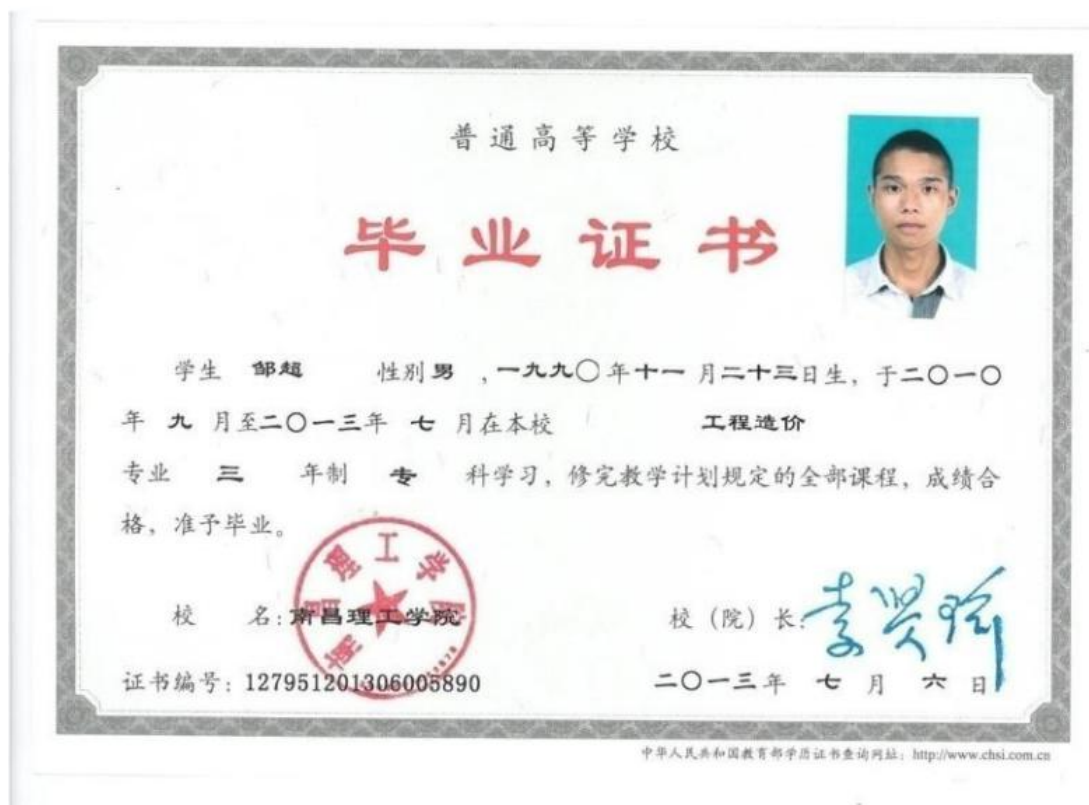 普通高等学校
毕业证书
学生 邹超 性别 男 ,一九九〇年十一月二十三日生，于二〇一〇
年 九 月至二〇一三年 七 月在本校 工程造价
专业 三 年制 专 科学习，修完教学计划规定的全部课程，成绩合
格，准予毕业。
校 名：南昌理工学院
南昌理工学院
校（院）长：
证书编号：127951201306005890
二〇一三年 七 月 六 日
中华人民共和国教育部学历证书查询网址：http://www.chsi.com.cn